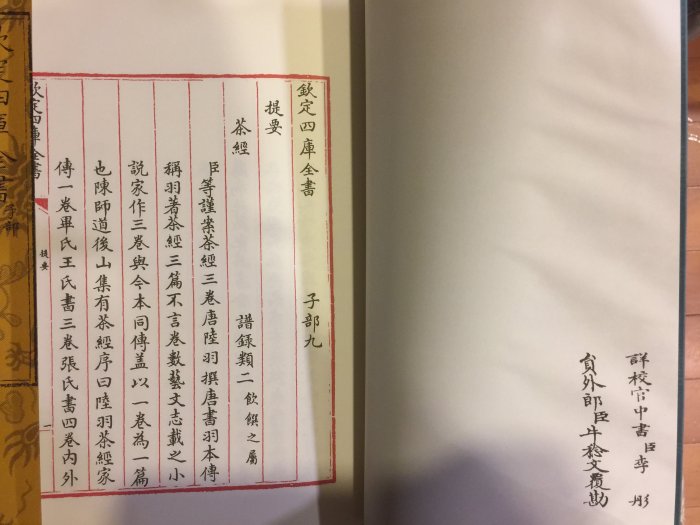 詳校官中書臣李彤
員外郎臣牛稔文覆勘
欽定四庫全書 子部九
提要 譜錄類二 飲饌之屬
茶經
臣等謹案茶經三卷唐陸羽撰唐書羽本傳
稱羽著茶經三篇不言卷數藝文志載之小
說家作三卷與今本同傳蓋以一卷為一篇
也陳師道後山集有茶經序曰陸羽茶經家
傳一卷畢氏王氏書三卷張氏書四卷內外
欽定四庫全書
提要
一
欽定四庫全書 子部